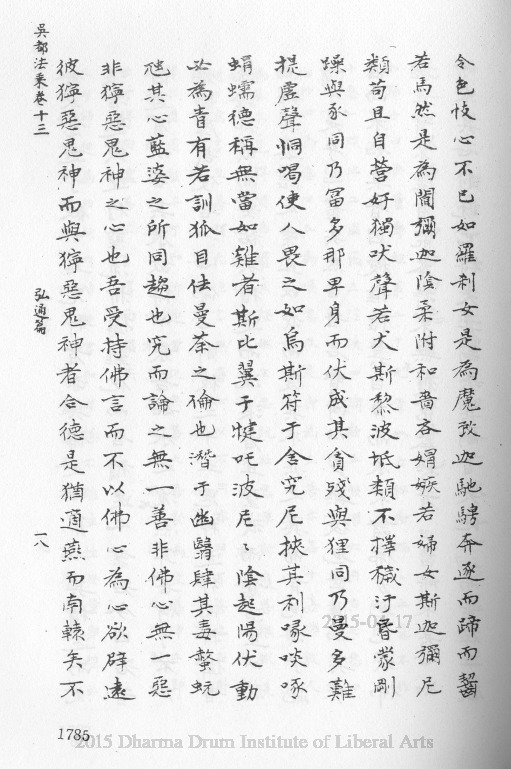 令色忮心不已如羅剎女是為魔孜迦馳騁奔逐而蹄而齧
若馬然是為闇彌迦陰柔附和嗇吝媢嫉若婦女斯迦彌尼
類苟且自營好獨吠聲若犬斯黎波坻類不擇穢汙昏蒙剛
躁與豕同乃冨多那卑身而伏成其貪殘與狸同乃曼多難
提虛聲恫喝使人畏之如烏斯符于舍究尼挾其利喙啖啄
蜎蠕德稱無當如雞者斯比翼于犍吒波尼尼陰起陽伏動
必為眚有若訓狐目佉曼荼之倫也潛于幽翳肆其毒螫蚖
虺其心藍婆之所同趨也究而論之無一善非佛心無一惡
非獰惡鬼神之心也吾受持佛言而不以佛心為心欲辟遠
彼獰惡鬼神而與獰惡鬼神者合德是猶適燕而南轅矣不
吳都法乘卷十三
弘通篇
一八
1785
2015 Dharma Drum Institute of Liberal Arts